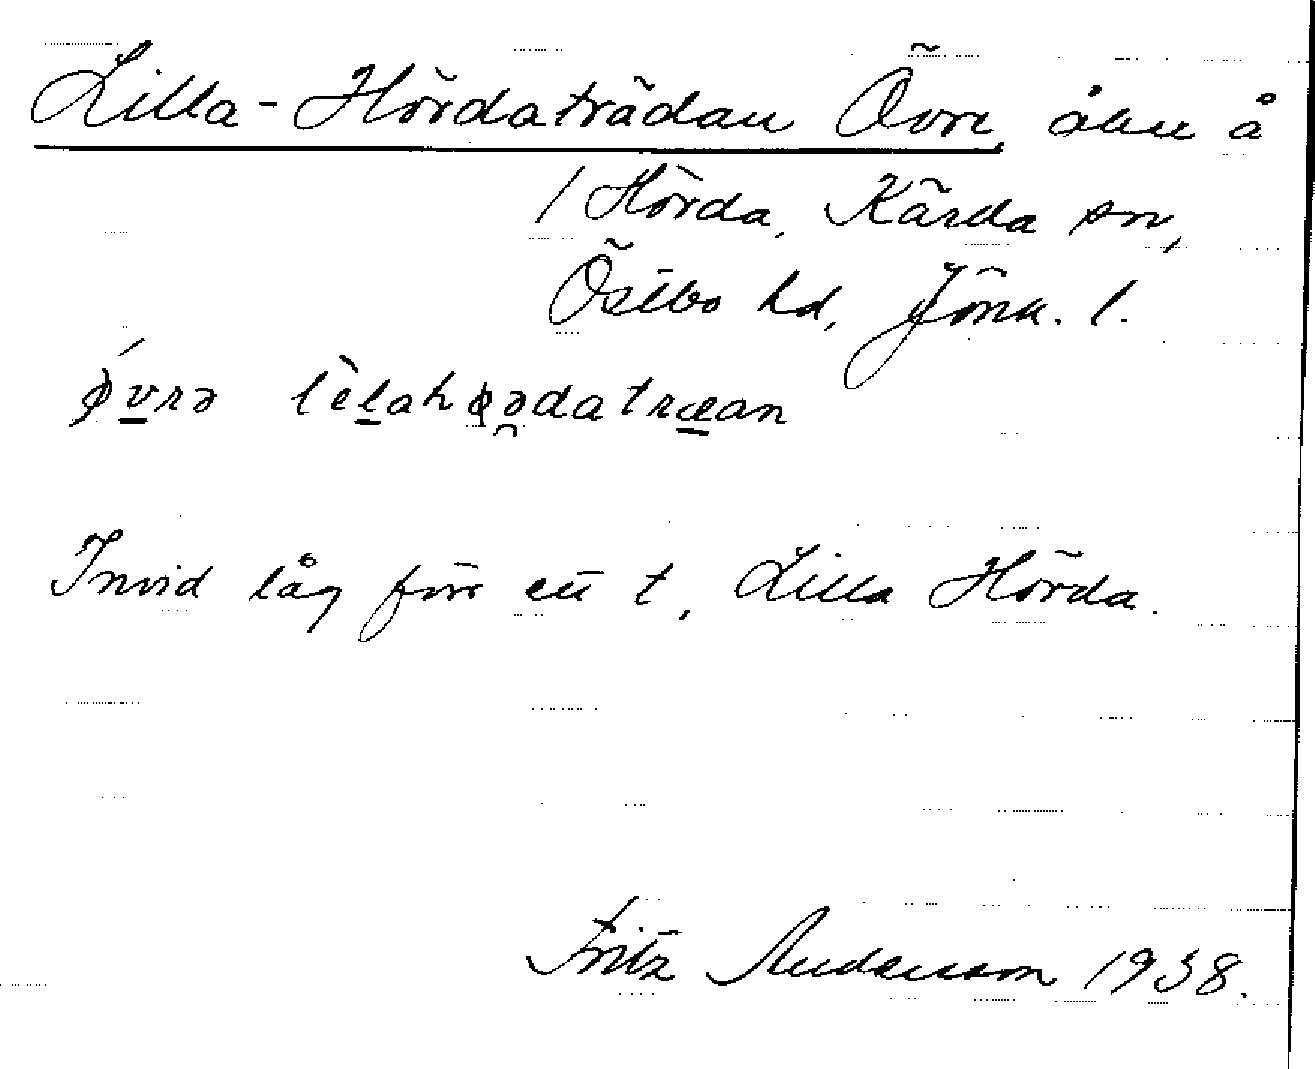 Lilla-Hördaträdan Övre, åker å
1 Hörda, Kärda sn,
Östbo hd, Jönk. l.
ǿvrə lèlahøədatræan
Invid låg förr ett t, Lilla Hörda.
Fritz Andersson 1938.